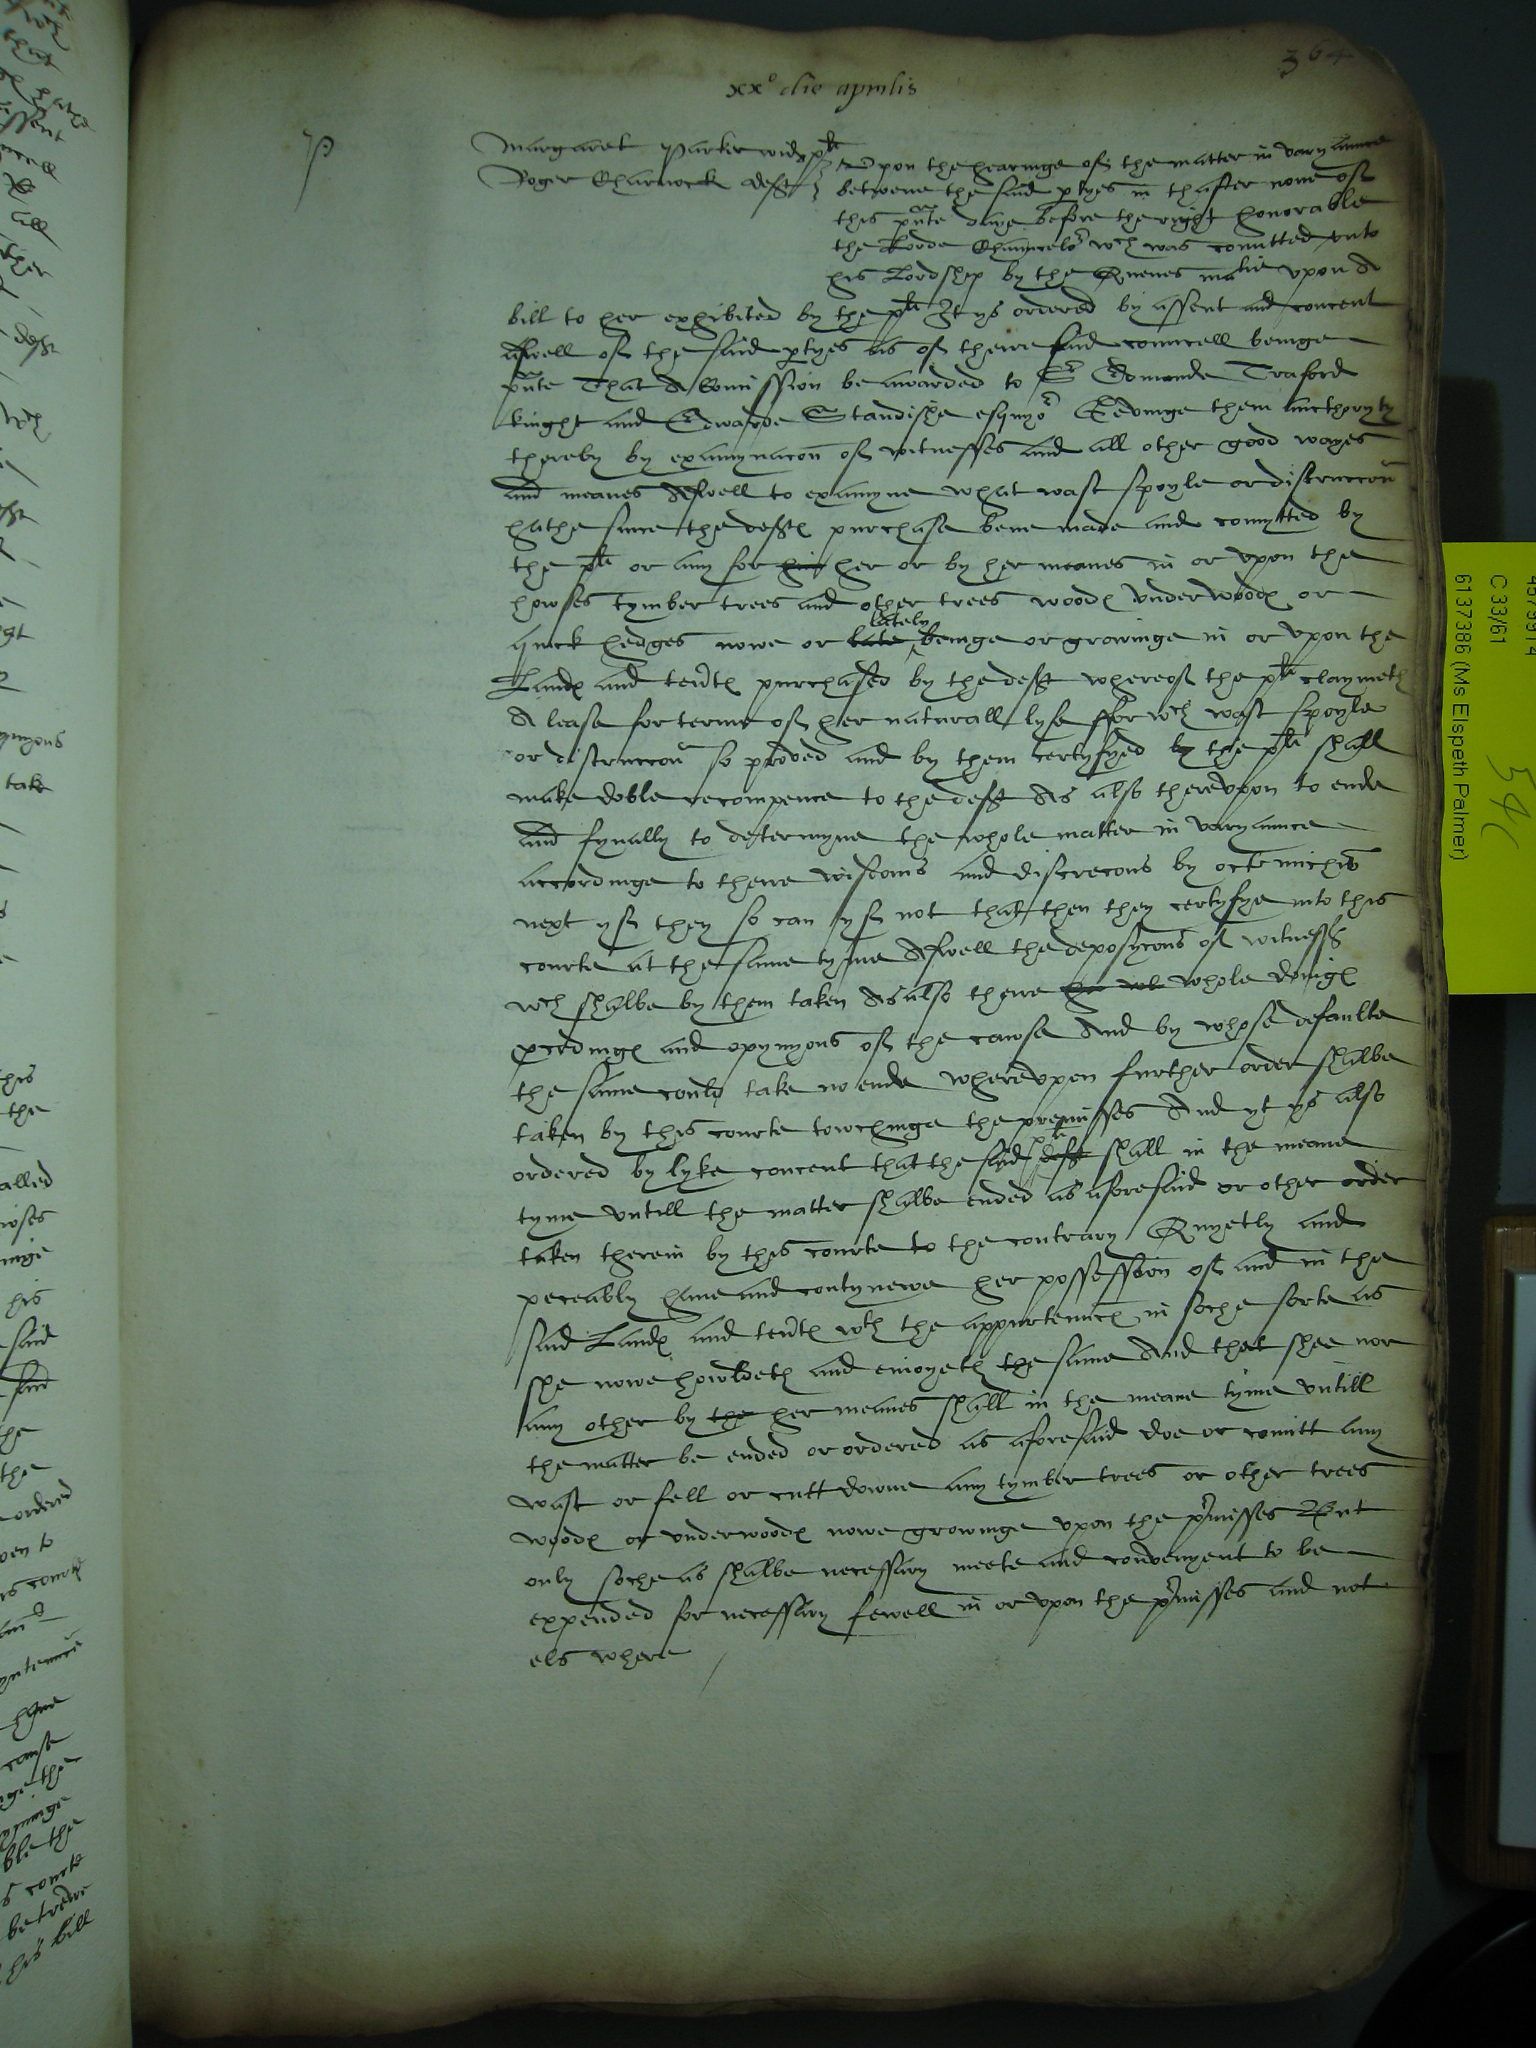 364
xx° die aprilis
P
Margaret Parker wid plt
Roger Charnock deft
Upon the hearinge of the matter in varyaunce
betwene the said ptyes in thafter none of
this pnte daye before the right honorable
the Lorde Chauncelor wch was comitted unto
his Lordship by the Quenes matie upon A
bill to her exhibited by the plt It ys ordered by assent and concent
aswell of the said ptyes as of theire said councell beinge
pnte That A Comission be awarded to Sr Edmunde Traford
knight and Edwarde Standishe esquyor Gevinge them aucthoryty
thereby by examynacon of witnesses and all other good wayes
and meanes Aswell to examyne what wast spoyle or distruccon
hathe since the defts purchase bene made and comytted by
the plt or any for his her or by her meanes in or upon the
howses tymber trees and other trees woods underwoods or
quick hedges nowe or late lately beinge or growinge in or upon the
Lands and tents purchased by the deft whereof the plt claymeth
A lease for terme of her naturall lyfe ffor wch wast spoyle
or distruccon so proved and by them certyfyed by the plt shall
make doble recompence to the deft As also thereupon to ende
and fynally to determyne the whole matter in varyaunce
accordinge to theire wisdoms and discrecons by octs michis
next yf they so can yf not that then they certyfye into this
courte at the same tyme Aswell the deposycons of witnesses
wch shalbe by them taken As also theire whole doings
pcedings and opynyons of the cawse And by whose defaulte
the same could take no ende whereupon further order shalbe
taken by this courte towchinge the premisses And yt ys also
ordered by lyke concent that the said deft plt shall in the meane
tyme untill the matter shalbe ended as aforesaid or other order
taken therein by this courte to the contrary Quyetly and
peceably have and contynewe her possession of and in the
said Lands and tents wth the appurtenncs in soche sorte as
she nowe howldeth and enioyeth the same And that shee nor
any other by the her meanes shall in the meane tyme untill
the matter be ended or ordered as aforesaid doe or comitt any
wast or fell or cutt downe any tymber trees or other trees
woods or underwoods nowe growinge upon the pmisses But
only soche as shalbe necessary meete and convenyent to be
expended for necessary fewell in or upon the pmisses and not
els where
4679914
C 33/61
6137386 (Ms Elspeth Palmer)